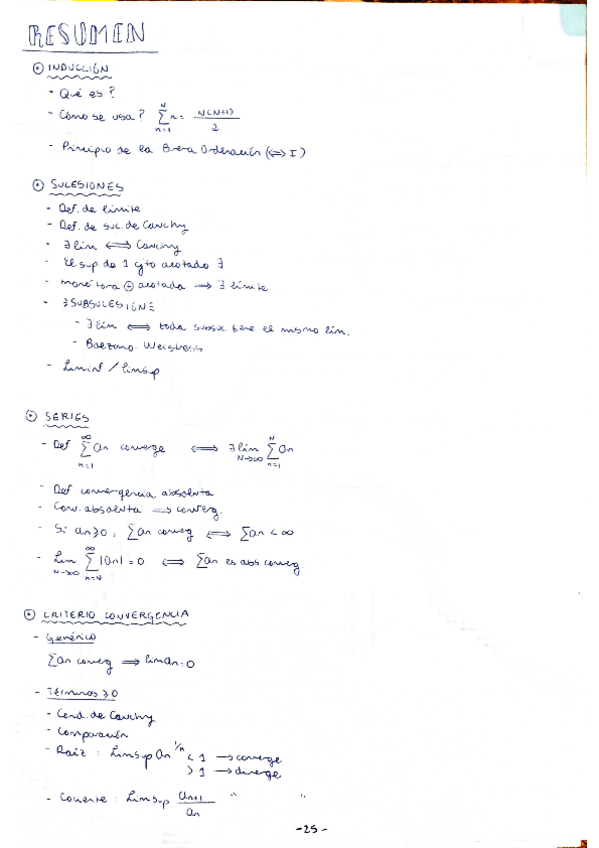 RESUMEN
⊙ INDUCCIÓN
- Qué es?
- Cómo se usa? ∑_{n=1}^{N} n = N(N+1)/2
- Principio de la Buena Ordenación (⟺ I)
⊙ SUCESIONES
- Def. de límite
- Def. de suc. de Cauchy
- ∃ lim ⟺ Cauchy
- El sup de 1 cjto acotado ∃
- monótona ⊕ acotada → ∃ límite
- SUBSUCESIONE
- ∃ lim ⟺ toda subsuc tiene el mismo lim.
- Bolzano-Weistress
- Liminf / limsup
⊙ SERIES
- Def ∑_{n=1}^{∞} an converge ⟺ ∃ lim_{N→∞} ∑_{n=1}^{N} an
- Def convergencia absoluta
- Conv. absoluta → converg.
- Si an ≥ 0, ∑ an converg ⟺ ∑ an < ∞
- Lim_{N→∞} ∑_{n=N}^{∞} |an| = 0 ⟺ ∑ an es abs converg
⊙ CRITERIO CONVERGENCIA
- Genérico
∑ an converg ⟹ lim an = 0
- Términos ≥ 0
- Cond. de Cauchy
- Comparación
- Raíz : Limsup an^{1/n} < 1 → converge
> 1 → diverge
- Cociente : Limsup an+1/an " "
-25-